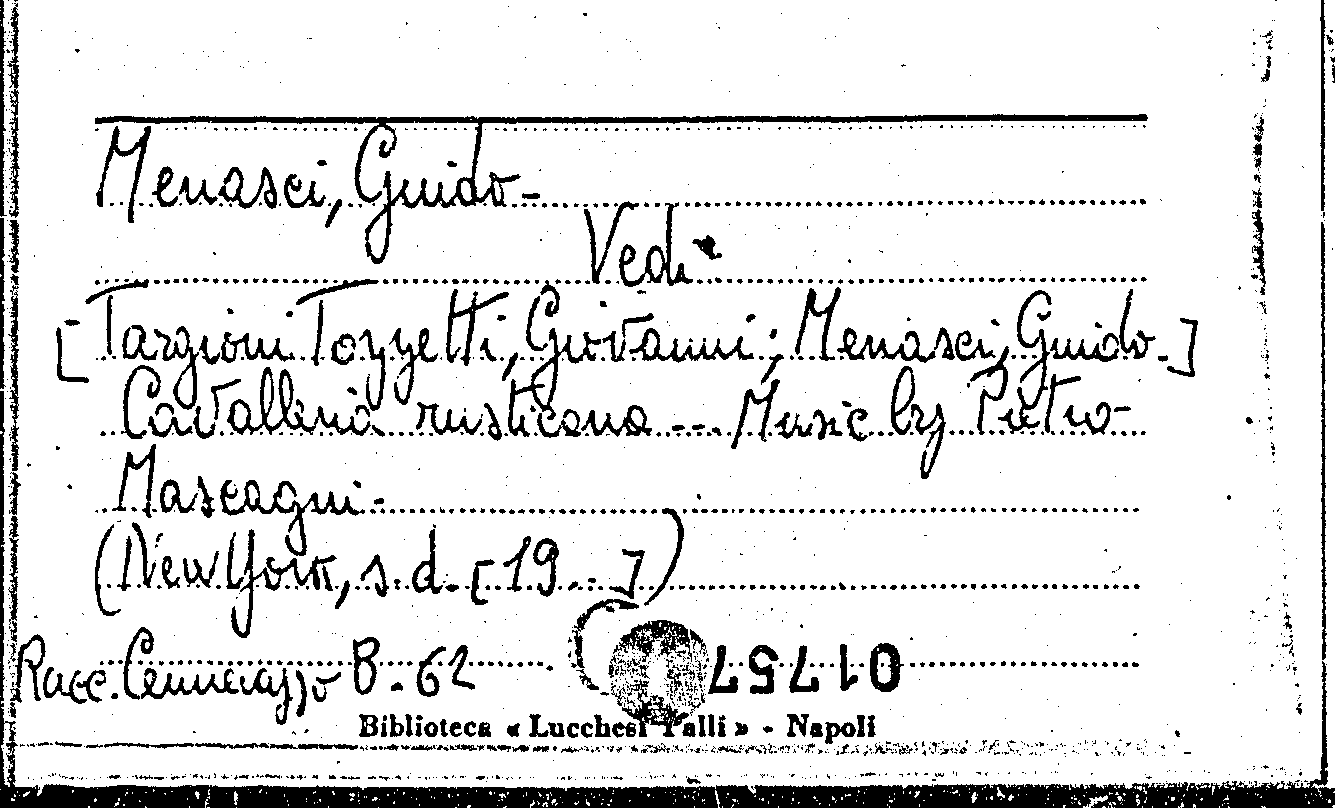 Menasci, Guido-
Vedi
[Targioni Tozzetti, Giovanni; Menasci, Guido.]
Cavalleria rusticana ... Music by Pietro
Mascagni.
(New York, s.d. [19..])
Racc. B.62
01757
Biblioteca « Lucchesi Palli » - Napoli